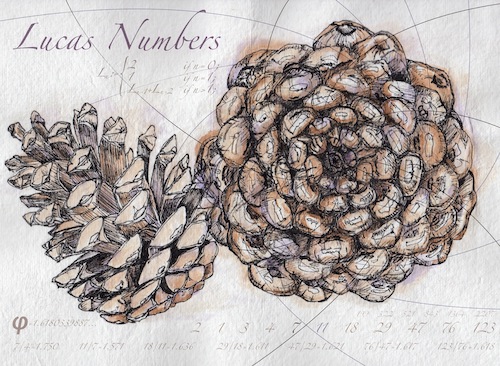 Lucas Numbers
2 if n=0,
1 if n=1,
φ=1.6180339887...
2 1 3 4 7 11 18 29 47 76 123
7/4=1.750 11/7=1.571 18/11=1.636 29/18=1.611 47/29=1.621 76/47=1.617 123/76=1.618